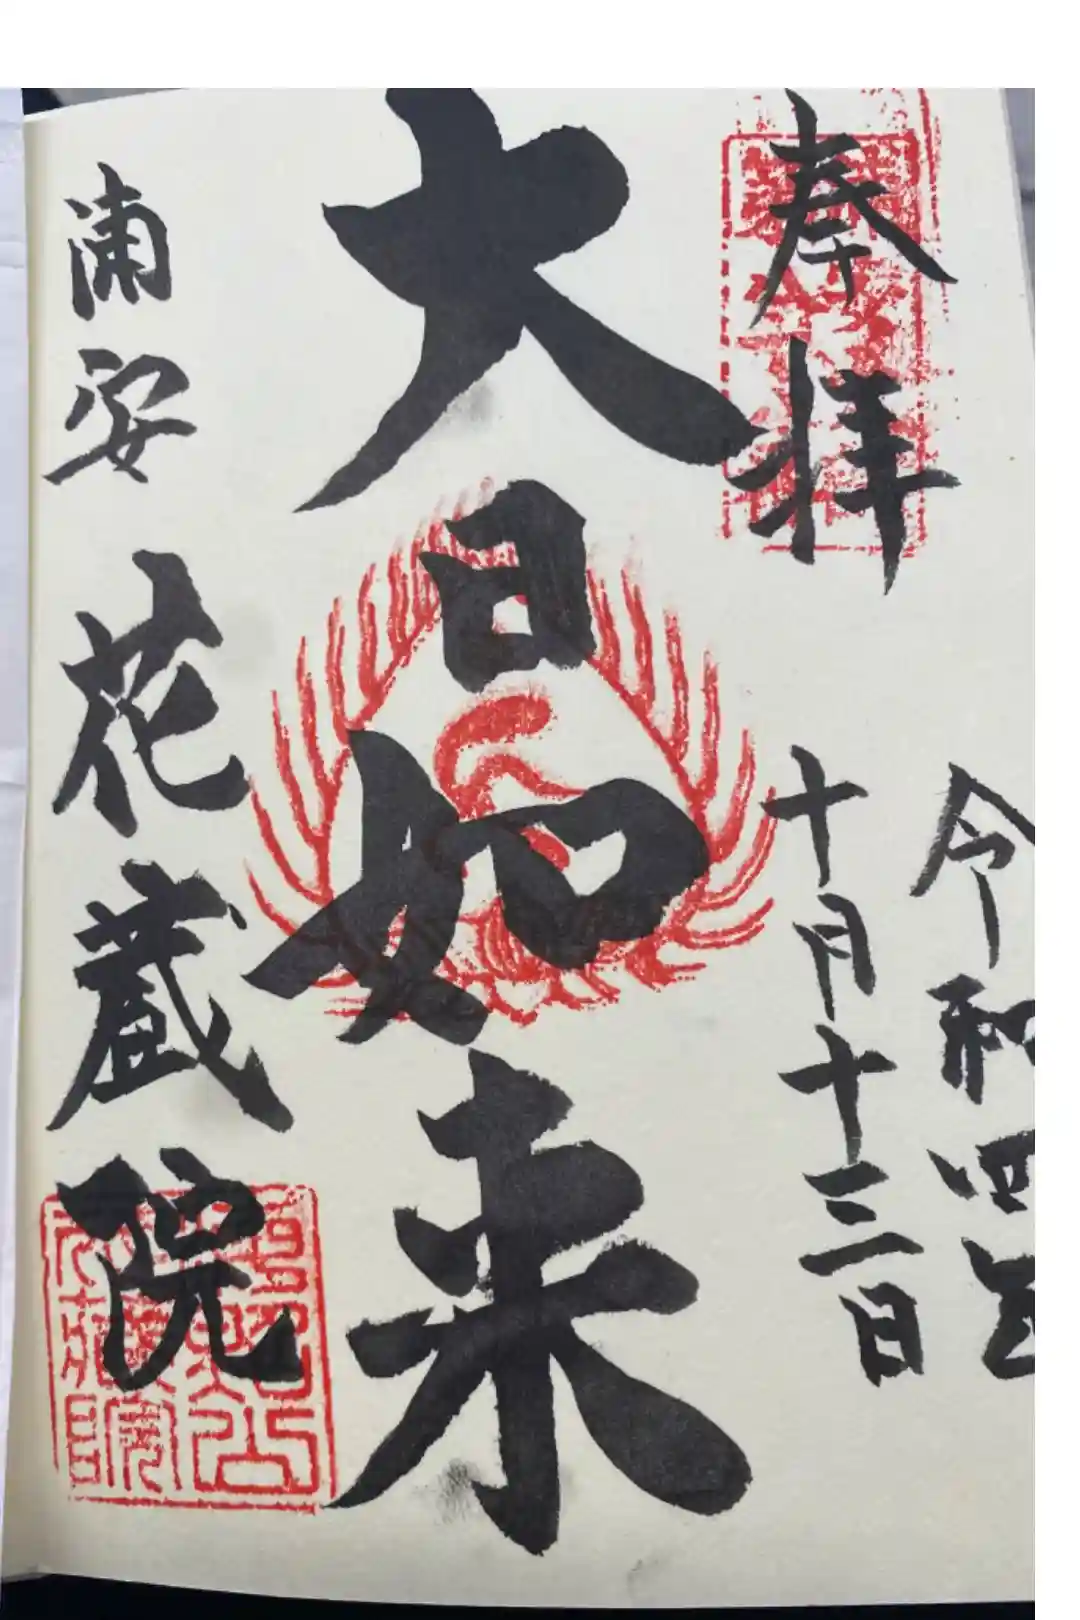 奉拝
令和四年
十月十三日
大日如来
浦安 花蔵院